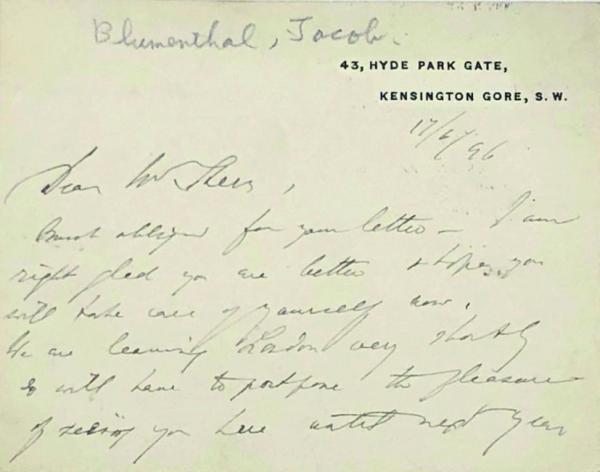 Blumenthal, Jacob.
43, HYDE PARK GATE,
KENSINGTON GORE, S. W.
17/6/96
Dear Mr
Much obliged for your letter – I am
right glad you are better & hope you
will take care of yourself now.
We are leaving London very shortly
& will have to postpone the pleasure
of seeing you here until next year